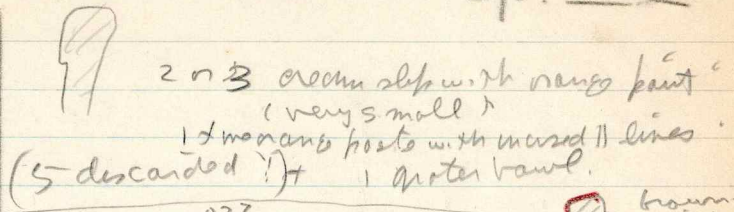 2 or 3 cream slip with orange paint "
(very small)
1 x orange paste with incised || lines.
(5 discarded !)+ 1 grater bowl.
brown